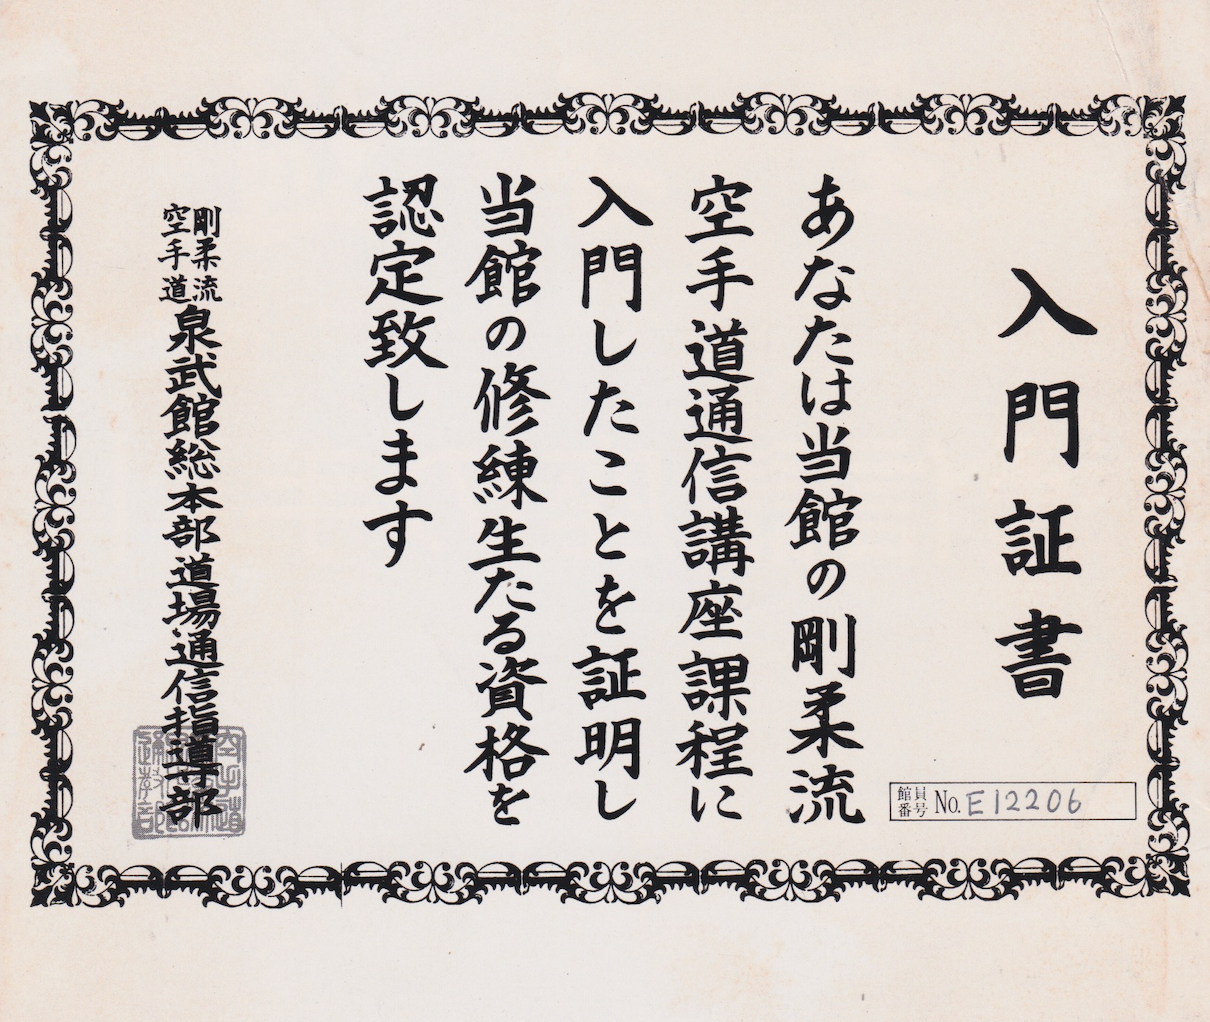 入門証書
館員番号 No. E12206
あなたは当館の剛柔流
空手道通信講座課程に
入門したことを証明し
当館の修練生たる資格を
認定致します
剛柔流空手道 泉武館総本部道場通信指導部